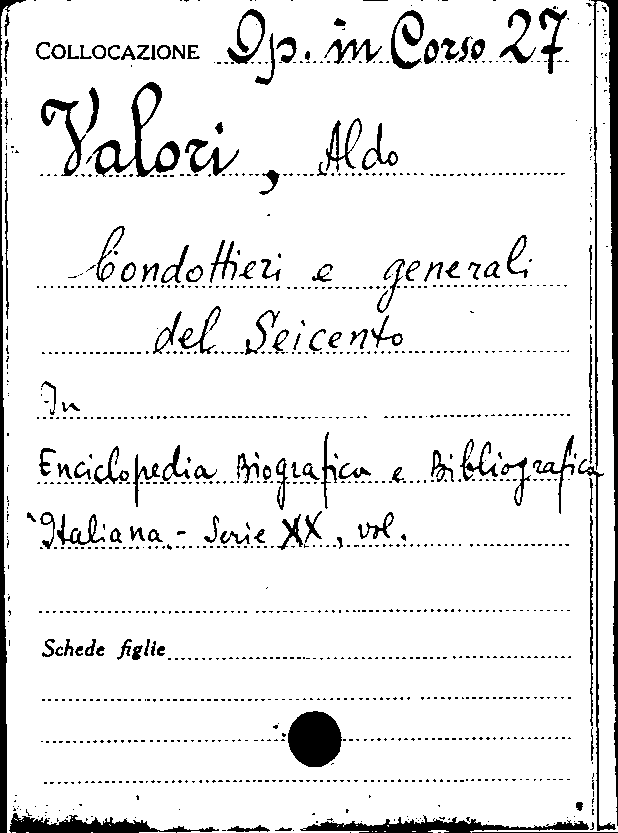 COLLOCAZIONE Op. in Corso 27
Valori, Aldo
Condottieri e generali
del Seicento
In
Enciclopedia Biografica e Bibliografica
Italiana - Serie XX, vol.
Schede figlie